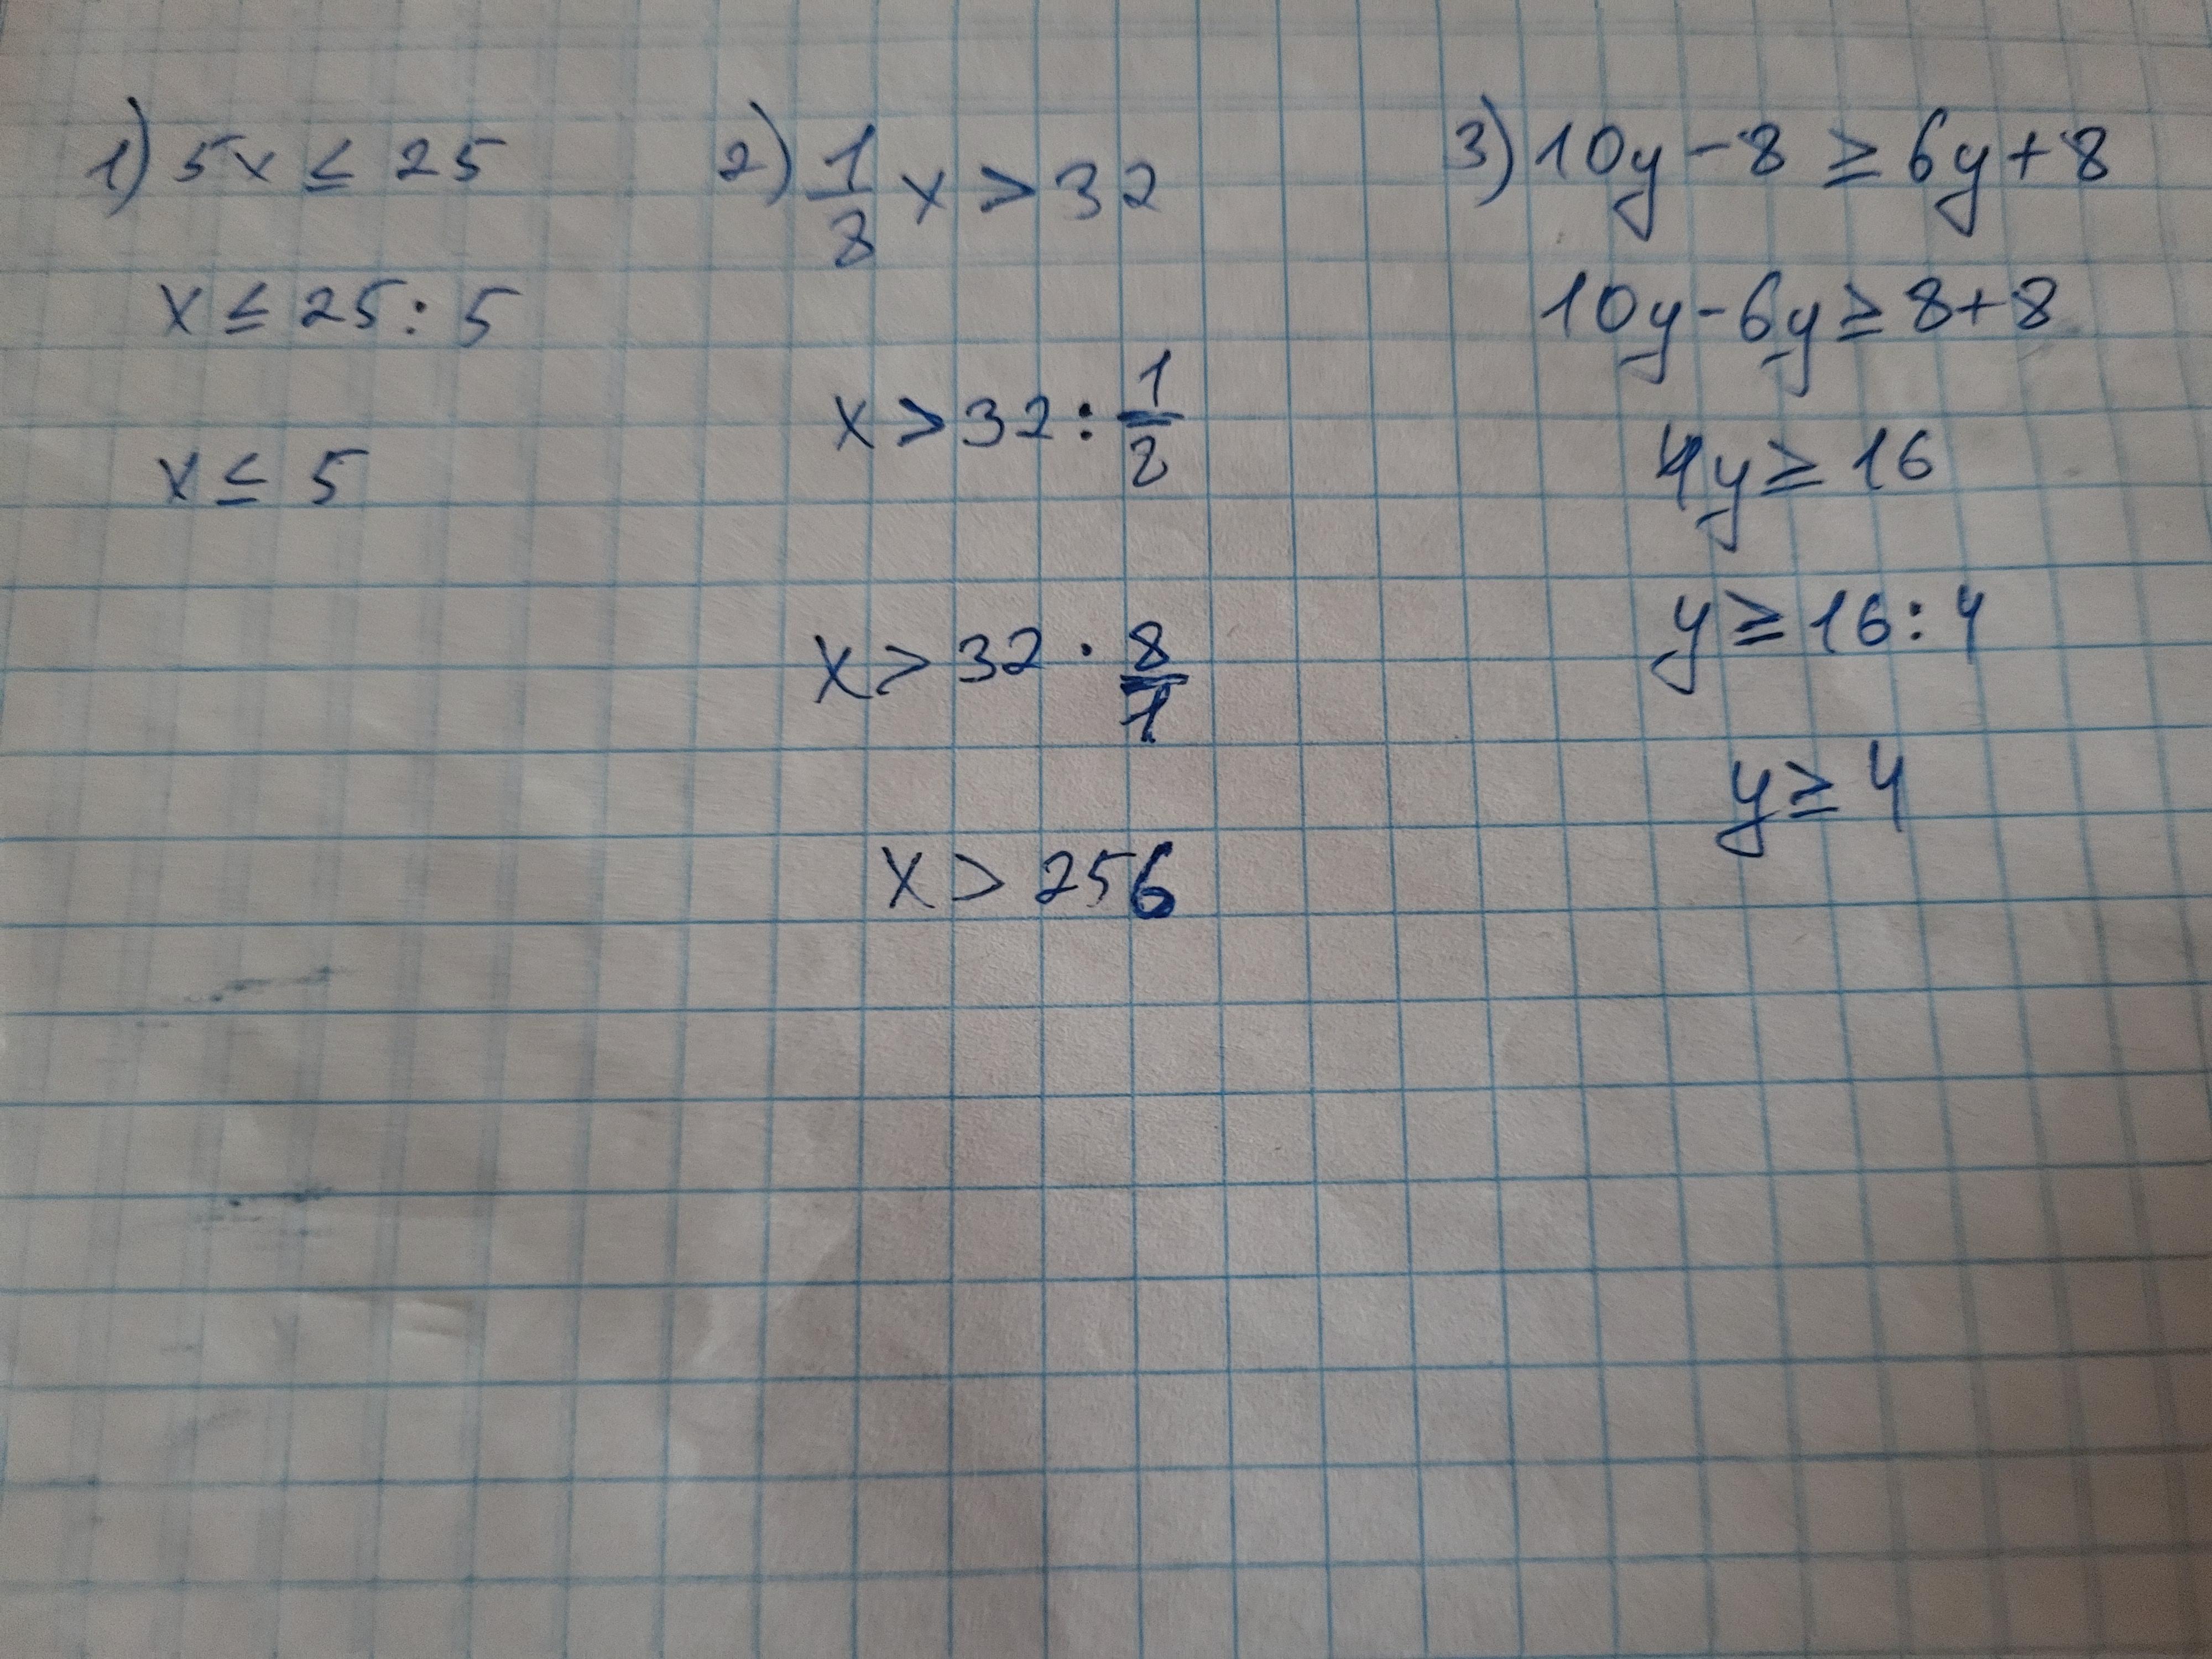 1) 5x ≤ 25
x ≤ 25 : 5
x ≤ 5
2) 1/8 x > 32
x > 32 : 1/8
x > 32 · 8/1
x > 256
3) 10y - 8 ≥ 6y + 8
10y - 6y ≥ 8 + 8
4y ≥ 16
y ≥ 16 : 4
y ≥ 4